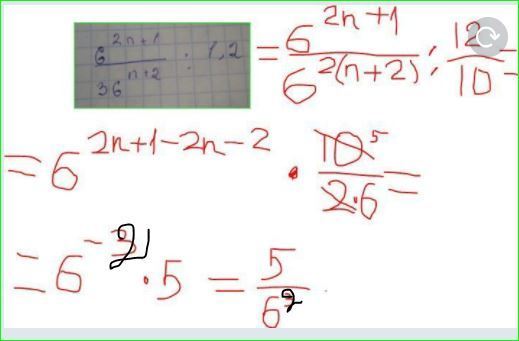 6^(2n+1)/36^(n+2) : 1,2 = 6^(2n+1)/6^(2(n+2)) : 12/10 =
= 6^(2n+1-2n-2) · 10 5/2·6 =
= 6^- · 5 = 5/6^2